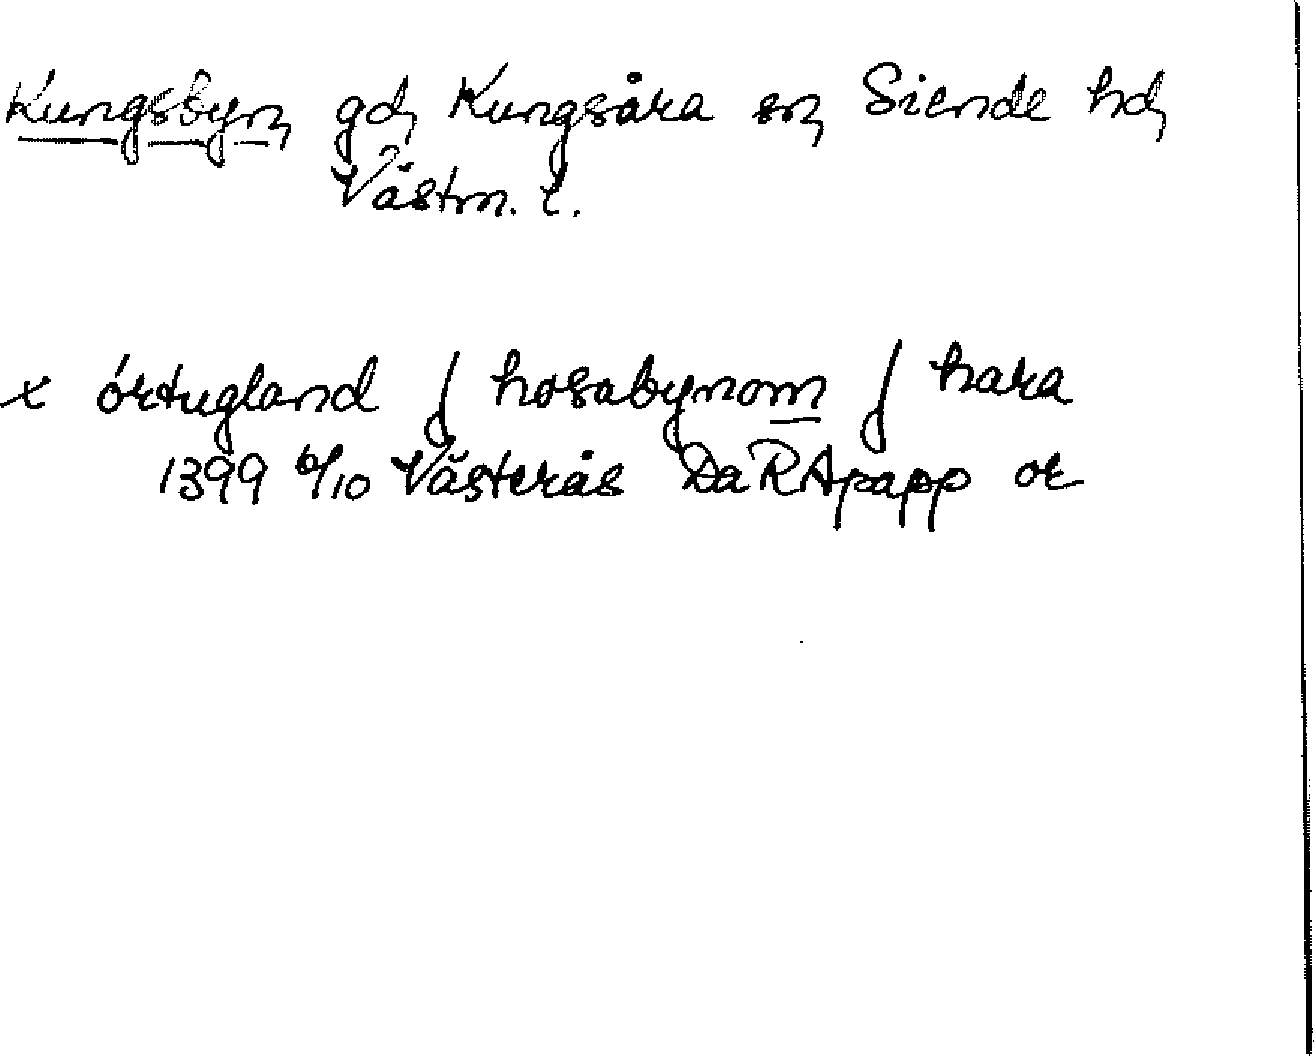 Kungsbyn, gd, Kungsåra sn, Siende hd,
Västm. l.
x örtugland ʃ hosabynom ʃ hara
1399 6/10 Västerås DaRApapp or